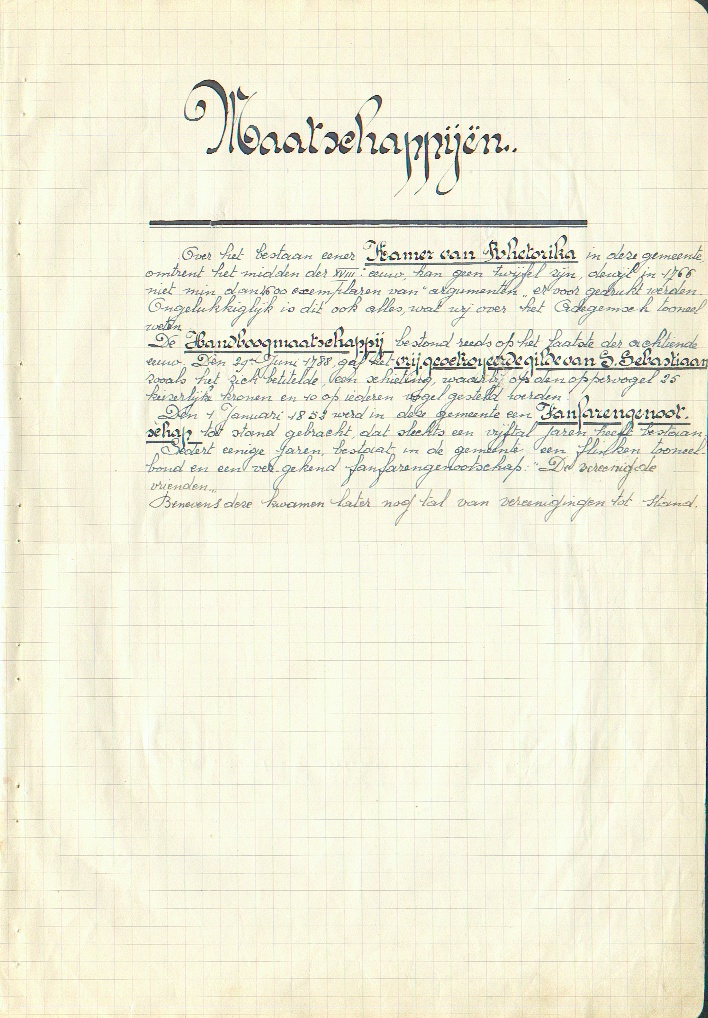 Maatschappijën.
Over het bestaan eener Kamer van Rhetorika in deze gemeente,
omtrent het midden der XVIIIe eeuw, kan geen twijfel zijn, dewijl in 1766
niet min dan 600 exemplaren van "argumentin" er voor gedrukt werden.
Ongelukkiglijk is dit ook alles, wat wij over het Adegemsch tooneel
weten.
De Handboogmaatschappij bestond reeds op het laatste der achtiende
eeuw. Den 29en Juni 1788 gaf het vrij geoctroyeerde gilde van S. Sebastiaan
zooals het zich betitelde, een schieting, waarbij op den oppervogel 25
keizerlijke kronen en 10 op iederen vogel gesteld werden.
Den 1 Januari 1853 werd in deze gemeente een Fanfarengenoot-
schap tot stand gebracht, dat slechts een vijftal jaren heeft bestaan.
Sedert eenige jaren, bestaat in de gemeente een flinken tooneel-
bond en een ver gekend fanfarengenootschap: "De vereenigde
vrienden".
Benevens deze kwamen later nog tal van vereenigingen tot stand.